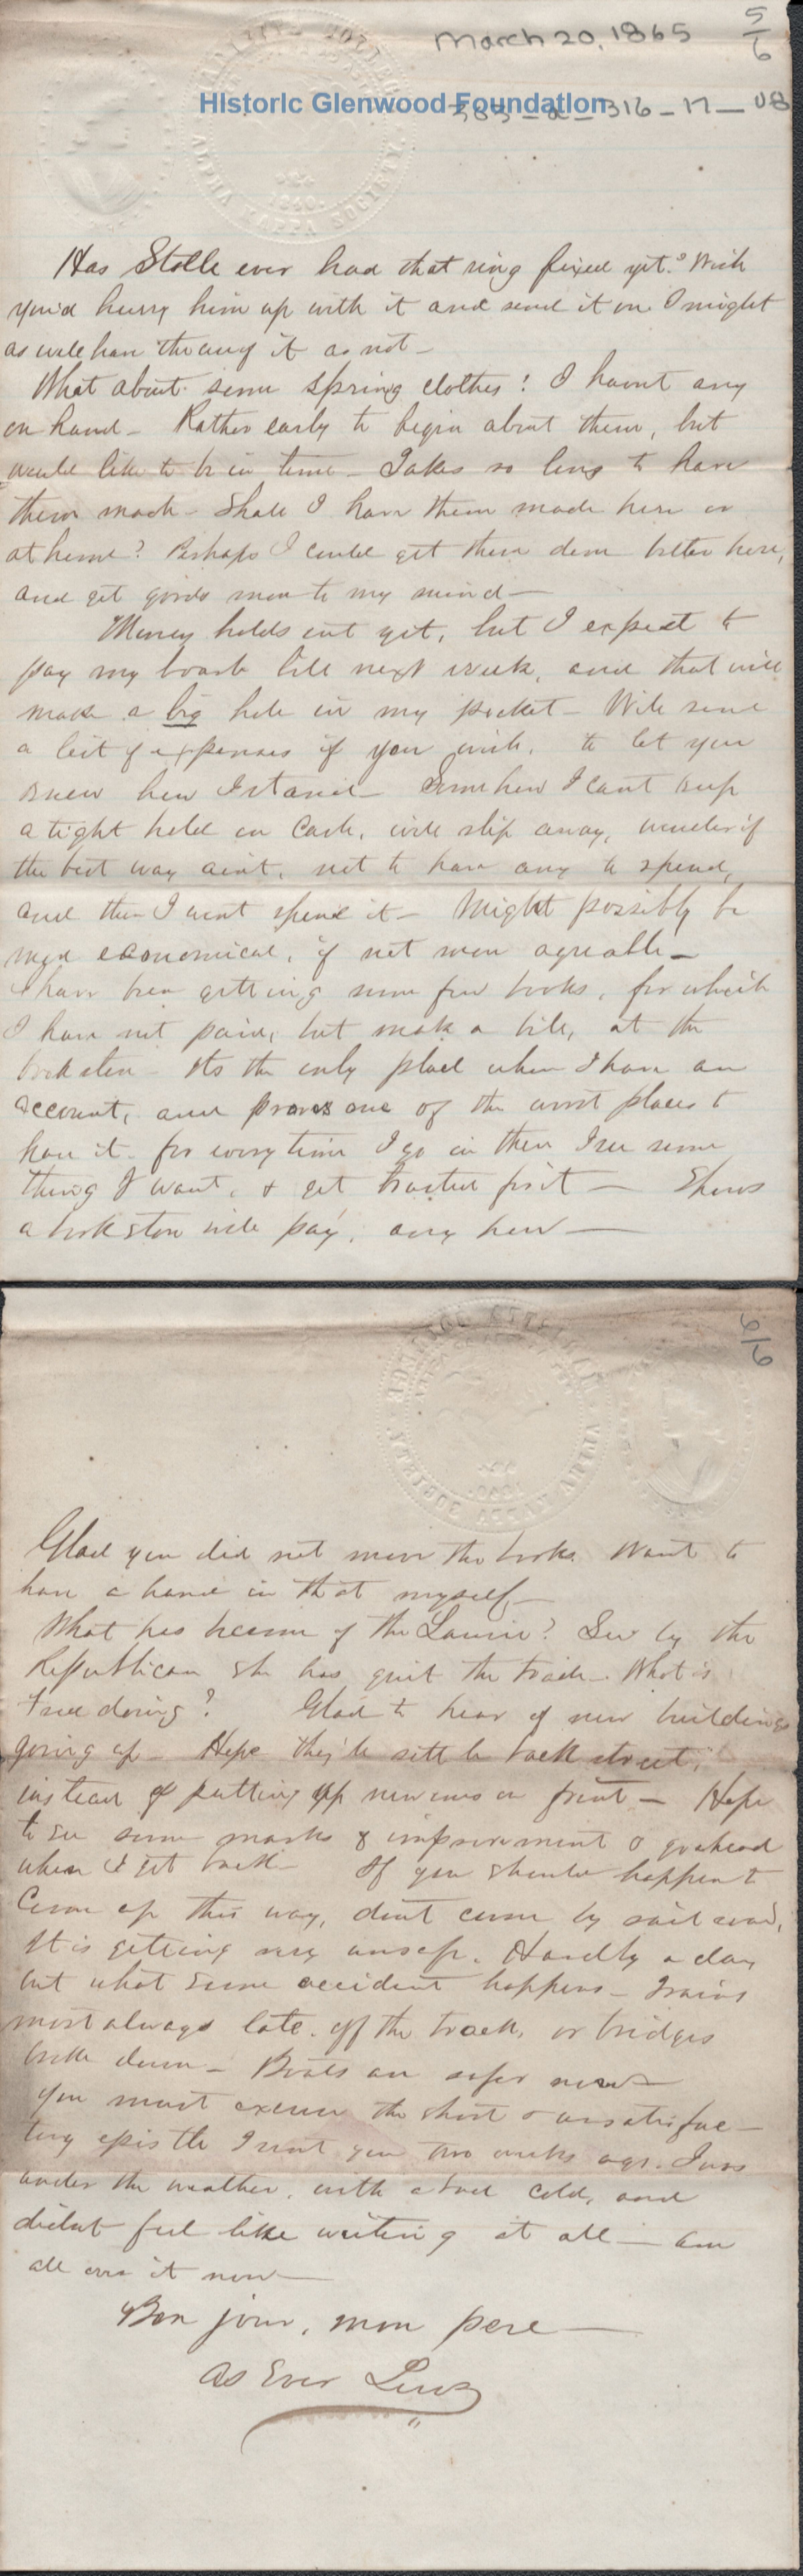 March 20, 1865
5/6
Historic Glenwood Foundation
316-17-08
ALPHA KAPPA SOCIETY
Has Stolle ever had that ring fixed yet? Wish
you'd hurry him up with it and send it on. I might
as well have the use of it as not—
What about some spring clothes! I havnt any
on hand— Rather early to begin about them, but
would like to be in time— Takes so long to have
them made— Shall I have them made here or
at home? Perhaps I could get them done better here,
and get goods more to my mind—
Money holds out yet, but I expect to
pay my board bill next week, and that will
make a big hole in my pocket— Will send
a list of expenses if you wish, to let you
know how I stand— Somehow I cant keep
a tight hold on Cash, will slip away, wonder if
the best way aint, not to have any to spend,
and then I wont spend it— Might possibly be
more economical, if not more agreable—
I have been getting some few books, for which
I have not paid, but make a bill, at the
bookstore— Its the only place where I have an
account, and proves one of the worst places to
have it— for every time I go in there I see some
thing I want, & get trusted for it— Shows
a bookstore will pay, any how—
6/6
Glad you did not move the books. Want to
have a hand in that myself—
What has become of the Laurie? See by the
Republican she has quit the trade. What is
doing? Glad to hear of new buildings
going up— Hope they'le settle back street,
instead of putting up new ones on front— Hope
to see some marks of improvement & goahead
when I get back— If you should happen to
Come up this way, dont come by rail road,
It is getting very unsafe. Hardly a day
but what some accident happens— Trains
most always late. off the track, or bridges
broke down— Boats are safer now—
You must excuse the short & unsatisfac—
tory epistle I sent you two weeks ago. I was
under the weather, with a bad cold, and
didnt feel like writing at all— am
all over it now—
Bon jour, mon pere—
As Ever Lew